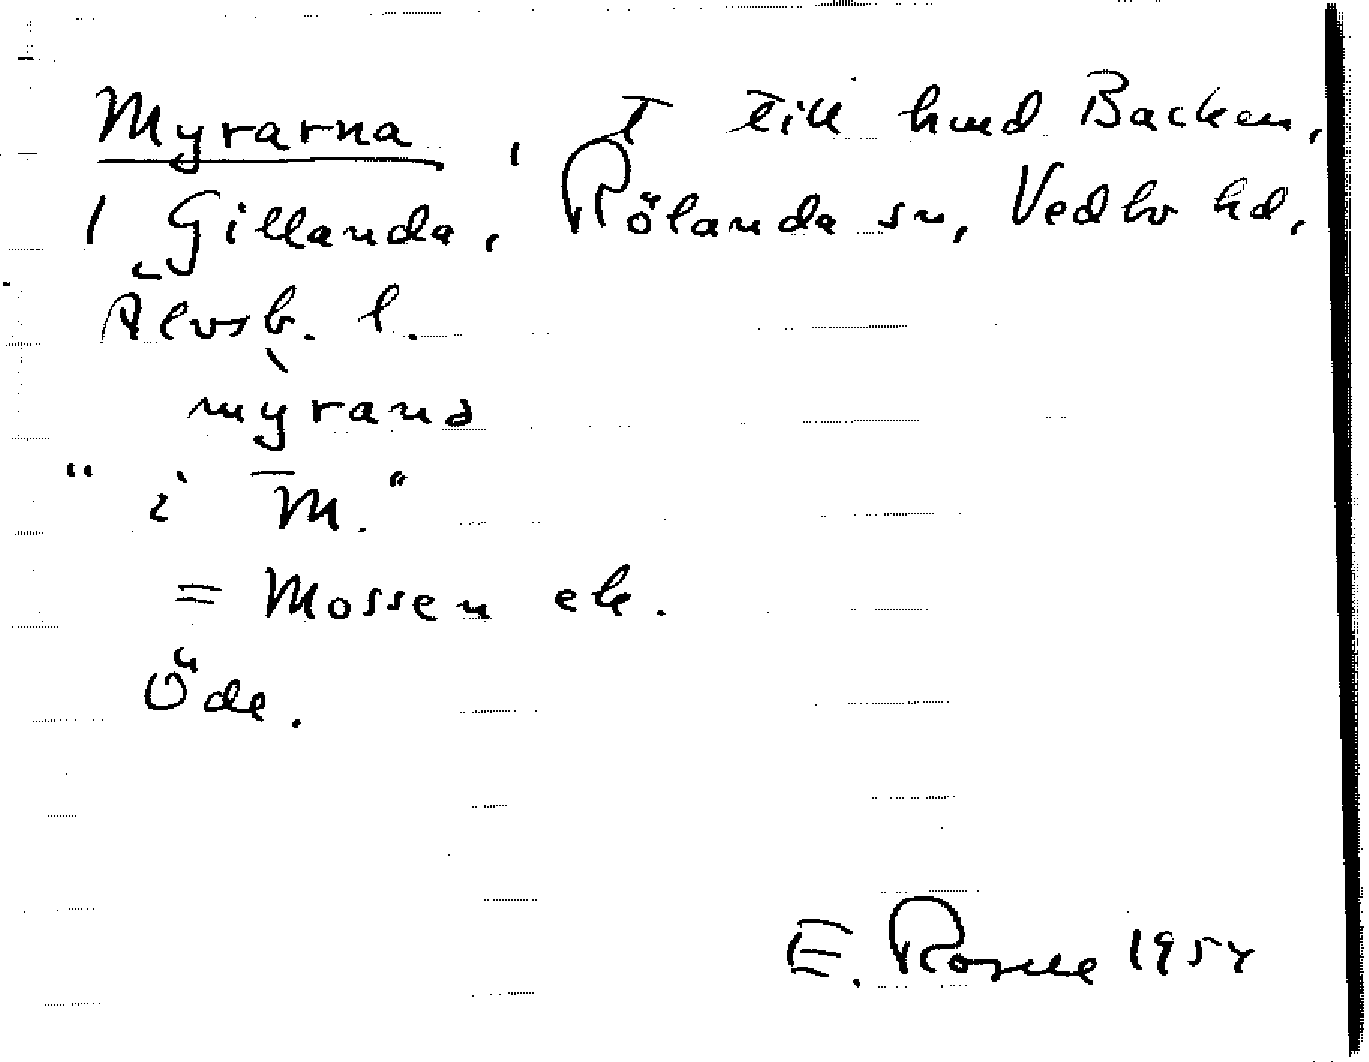 Myrarna, T till hmd Backen,
1 Gillanda, Rölanda sn, Vedbo hd,
Älvsb. l.
mỳrana
" i M."
= Mossen ek.
Öde.
E. 1954